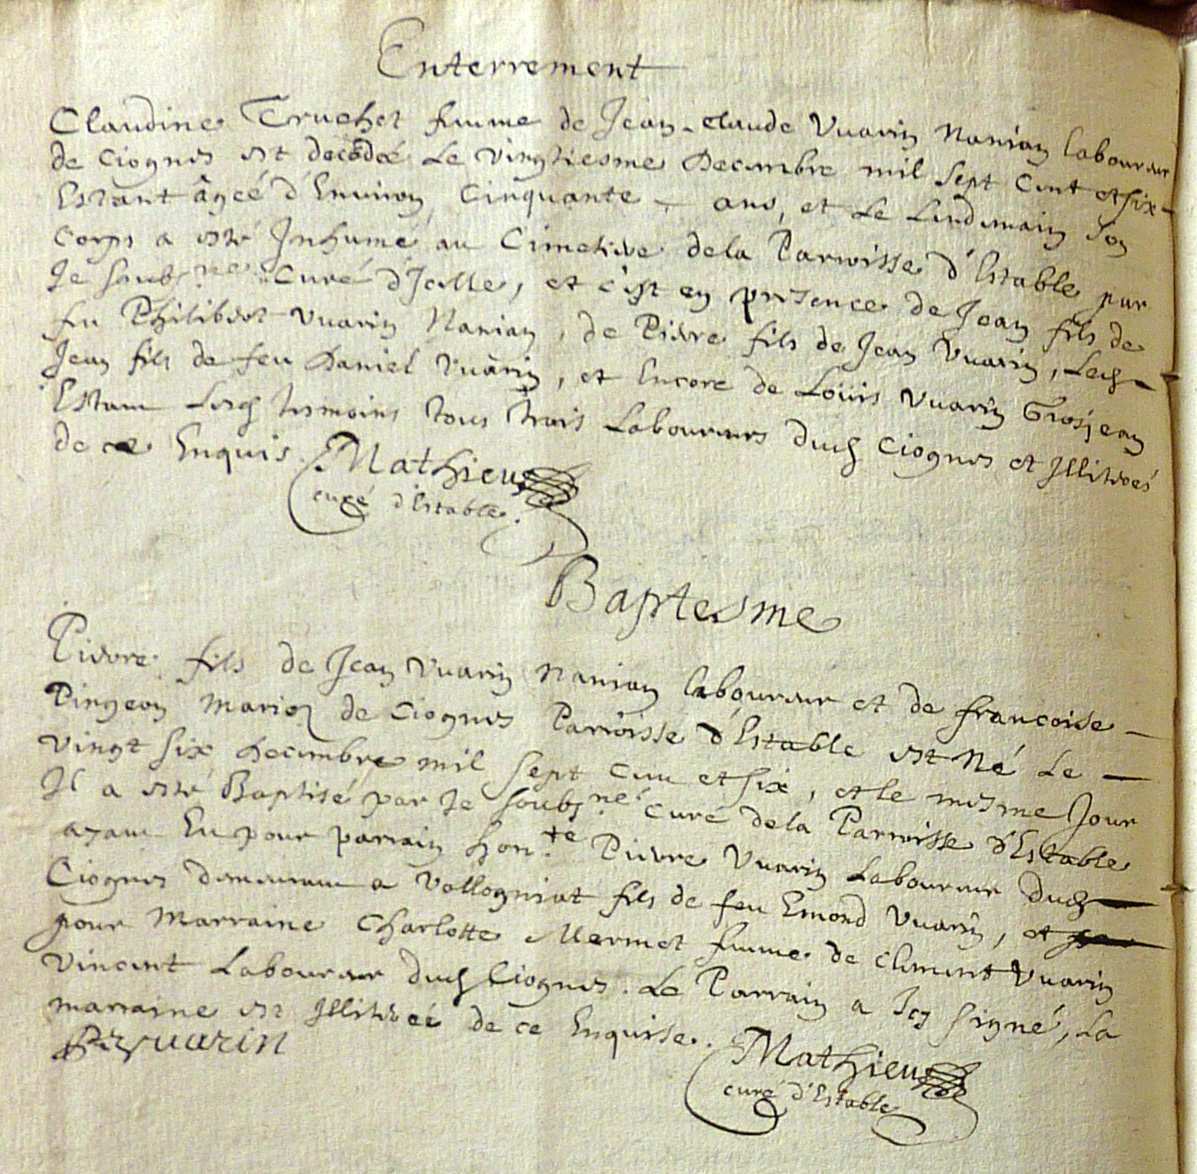 Enterrement
Claudine Truchet femme de Jean-claude Vuarin Nanian laboureur
de Ciognes est decedée Le vingtiesme Decembre mil sept cent et six
Estant âgeé d'Environ Cinquante - ans, et Le Lendemain son
Corps a esté Inhumé au Cimetiere de la Parroisse d'Estable par
Je soubs.né Curé d'Icelle, et c'est en presence de Jean fils de
feu Philibert Vuarin Nanian, de Pierre fils de Jean Vuarin,
Jean fils de feu Daniel Vuarin, et Encore de Loüis Vuarin Grosjean
Estant Lesd tesmoins tous trois Laboureurs dud Ciognes et Illiterés
de ce Enquis. Mathieu
curé d'Estable.
Baptesme
Pierre fils de Jean Vuarin Nanian laboureur et de francoise
Pingeon Mariez de Ciognes Parroisse d'Estable est Né Le
vingt six Decembre mil sept cent et six, et le mesme Jour
Il a esté Baptisé par Je soubs.né Curé de la Parroisse d'Estable
ayant Eu pour parrain hon.te Pierre Vuarin Laboureur dud
Ciognes demeurant a Vollogniat fils de feu Emond Vuarin, et
pour Marraine Charlotte Mermet femme de Climent Vuarin
Vincent Laboureur dud Ciognes. Le Parrain a Icy signé, La
marraine est Illitereé de ce Enquise. Mathieu
vuarin
curé d'Estable